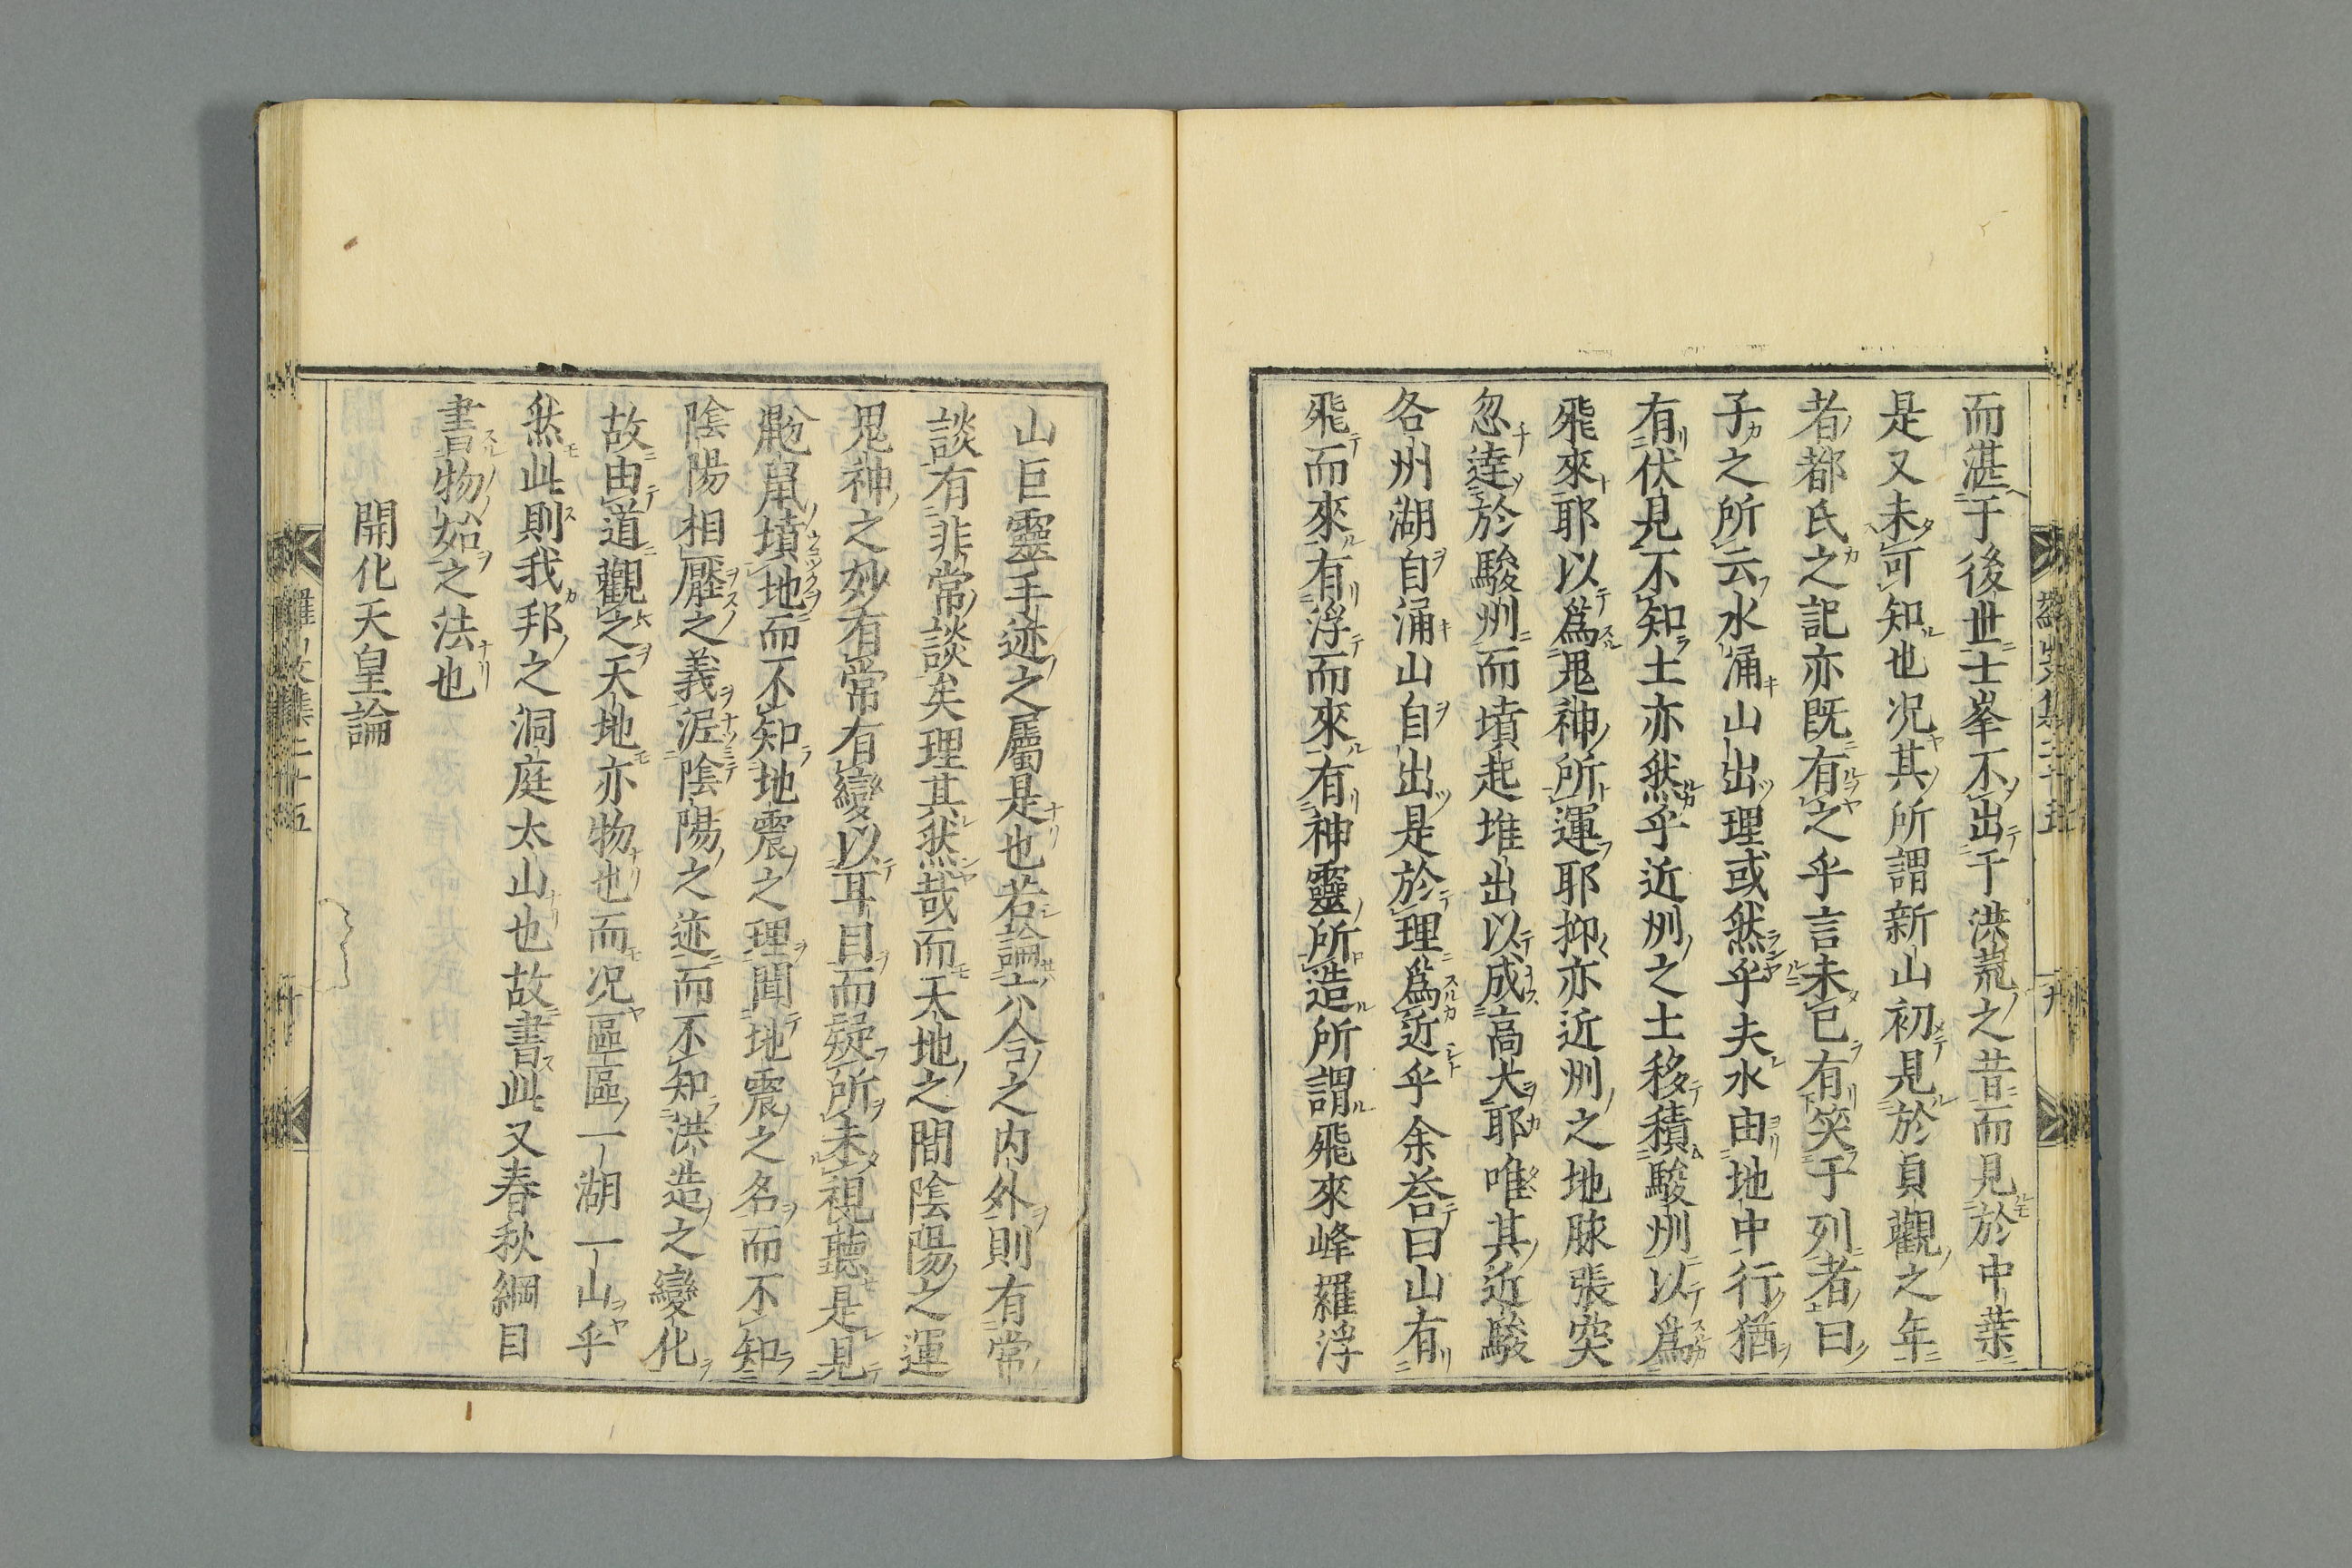 而湛于後世士峯不出于洪荒之昔而見於中葉
是又未可知也况其所謂新山初見於貞觀之年
者都氏之記亦既有之乎言未已有笑于列者曰
子之所云水涌山出理或然乎夫水由地中行猶
有伏見不知土亦然乎近州之土移積駿州以爲
飛來耶以爲鬼神所運耶抑亦近州之地脉張突
忽達於駿州而墳起堆出以成高大耶唯其近駿
各州湖自涌山自出是於理爲近乎余荅曰山有
飛而來有浮而來有神靈所造所謂飛來峰羅浮
山巨靈手迹之屬是也若論六合之内外則有常
談有非常談矣理其然哉而天地之間陰陽之運
鬼神之妙有常有變以耳目而疑所未視聽是見
鼢鼠墳地而不知地震之理聞地震之名而不知
陰陽相壓之義泥陰陽之迹而不知洪造之變化
故由道觀之天地亦物也而况區區一湖一山乎
然此則我邦之洞庭太山也故書此又春秋綱目
書物始之法也
開化天皇論
二十五